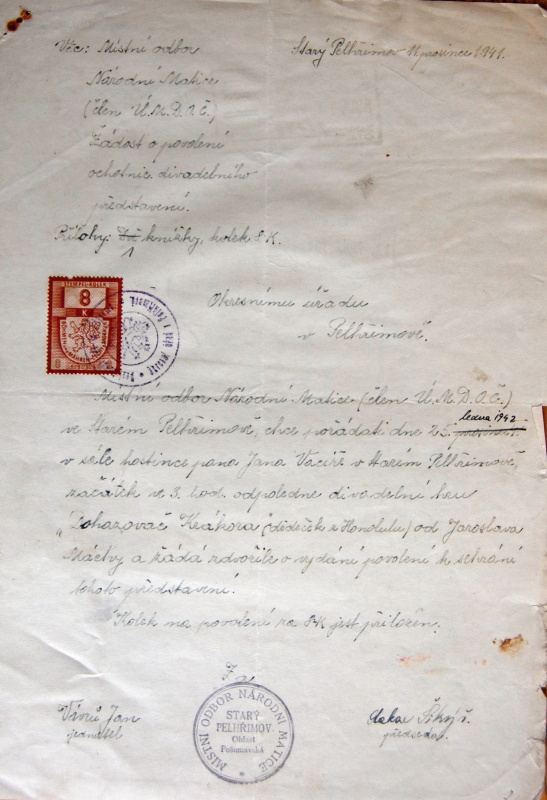 Věc: Místní odbor
Starý Pelhřimov 11. prosince 1941.
Národní Matice
(člen Ú.M.D.O.Č.)
Žádost o povolení
ochotnic. divadelního
představení.
Přílohy: knížky, kolek 8 K.
1
STEMPEL-KOLEK
8
K
8
Okresnímu úřadu
v Pelhřimově.
Místní odbor Národní Matice (člen Ú.M.D.O.Č.)
ledna 1942
ve Starém Pelhřimově, chce pořádati dne 25. prosince t.
v sále hostince pana Jana Vacíře v Starém Pelhřimově,
začátek ve 3. hod. odpoledne divadelní hru
"Dohazovač Kráhora" (dědeček z Honolulu) od Jaroslava
Máchy a žádá zdvořile o vydání povolení k sehrání
tohoto představení.
Kolek na povolení za 8K jest přiložen.
Za
MÍSTNÍ ODBOR NÁRODNÍ MATICE
STARÝ
PELHŘIMOV
Oblast
Pošumavská
Jan
jednatel
předseda.